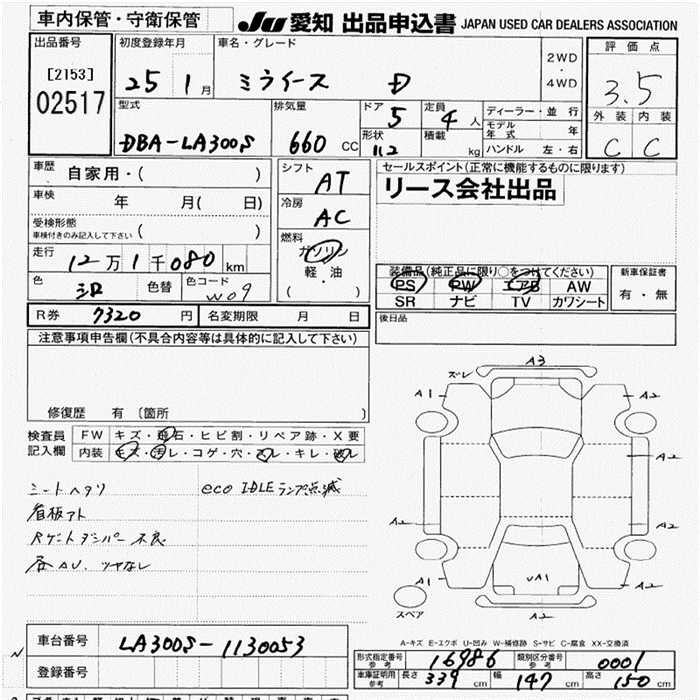 車内保管・守衛保管
JU 愛知 出品申込書 JAPAN USED CAR DEALERS ASSOCIATION
出品番号
[2153]
02517
初度登録年月
25 1月
車名・グレード
ミライース D
2WD
・
4WD
評価点
3.5
外装 内装
C C
型式
DBA-LA300S
排気量
660 CC
ドア
5
定員
4人
形状
積載
kg
ディーラー・並行
モデル年式 年
ハンドル 左・右
車歴 自家用・( )
車検 年 月( 日)
受検形態
車検付きのみ記入して下さい ( )
走行 12万1千080km
色
色替
色コード
W09
シフト
AT
冷房
AC
燃料
ガソリン
軽・油
( )
セールスポイント(正常に機能するものに限ります)
リース会社出品
装備品(純正品に限り○をつけてください)
PS PW エアB AW
SR ナビ TV カワシート
新車保証書
有・無
後日品
R券 7320 円 名変期限 月 日
注意事項申告欄(不具合内容等は具体的に記入して下さい)
修復歴 有 〔箇所 〕
検査員
記入欄
FW キズ・飛石・ヒビ割・リペア跡・X要
内装 キズ・汚レ・コゲ・穴・スレ・キレ・破レ
シートヘタリ
看板アト
eco IDLEランプ点滅
ズレ
A3
A1
A2
A2
A2
A2
A2
A1
UA1
A2
A2
スペア
A-キズ E-エクボ U-凹み W-補修跡 S-サビ C-腐食 XX-交換済
N
車台番号 LA300S-1130053
登録番号
形式指定番号
参考
16986
類別区分番号
参考
0001
車庫証明用
参考
長さ 339 cm 幅 147 cm 高さ 150 cm